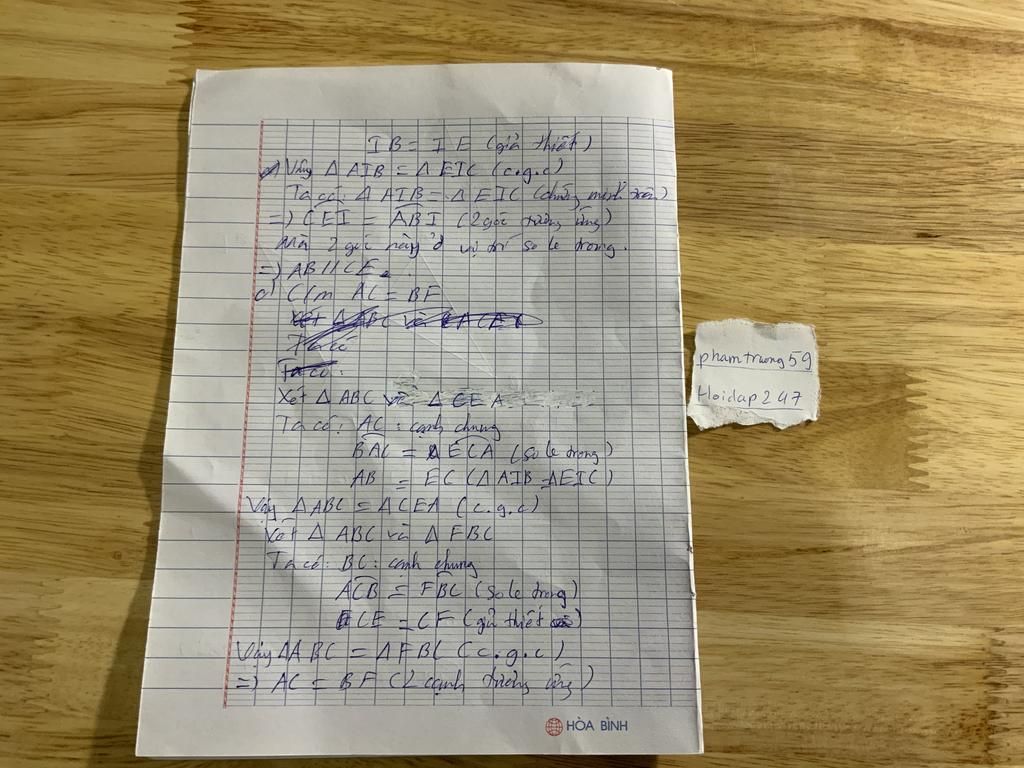 IB = IE (giả thiết)
Vậy Δ AIB = Δ EIC (c.g.c)
Ta có Δ AIB = Δ EIC (chứng minh trên)
=) CEI = ABI (2 góc tương ứng)
Mà 2 góc này ở vị trí so le trong.
=) AB // CE
c) C/m AC = BF
Ta có
Ta có:
Xét Δ ABC và Δ CEA
Ta có: AC: cạnh chung
BAC = ECA (so le trong)
AB = EC (Δ AIB = ΔEIC)
Vậy Δ ABC = ΔCEA (c.g.c)
Xét Δ ABC và Δ FBC
Ta có: BC: cạnh chung
ACB = FBC (so le trong)
CE = CF (giả thiết)
Vậy ΔABC = ΔFBC (c.g.c)
=) AC = BF (2 cạnh tương ứng)
HÒA BÌNH
phamtruong59
Hoidap247